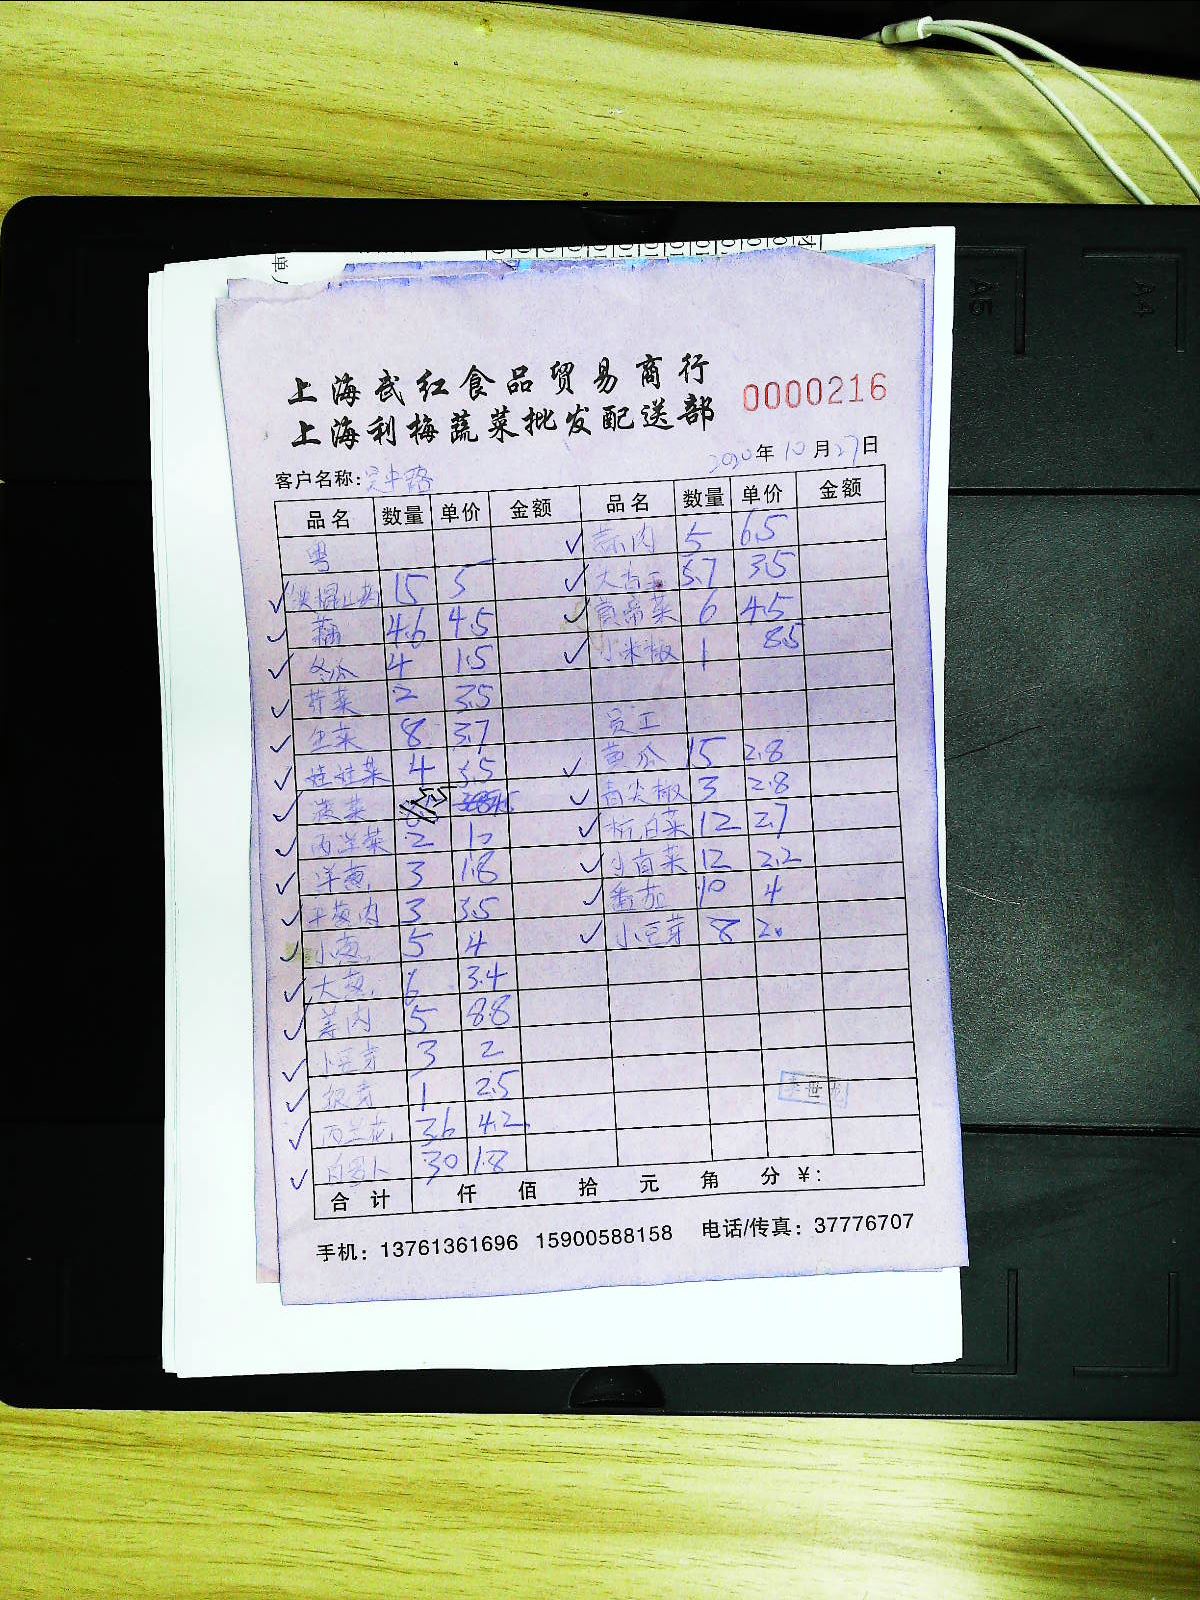 上海武红食品贸易商行
上海利梅蔬菜批发配送部
0000216
2020年10月27日
客户名称:
品名 数量 单价 金额 品名 数量 单价 金额
粤 蒜肉 5 6.5
15 5 5.7 3.5
藕 4.6 4.5 黄帝菜 6 4.5
冬瓜 4 1.5 小米椒 1 8.5
芹菜 2 3.5
生菜 8 3.7 员工
娃娃菜 4 3.5 黄瓜 15 2.8
菠菜 青尖椒 3 2.8
西洋菜 2 10 杭白菜 12 2.7
洋葱 3 1.8 小白菜 12 2.2
3 3.5 番茄 10 4
小葱 5 4 小豆芽 8 2.
大葱 6 3.4
姜肉 5 8.8
小豆芽 3 2
银芽 1 2.5
西兰花 3.6 4.2
白萝卜 30 1.8
合计 仟 佰 拾 元 角 分 ¥:
手机: 13761361696 15900588158 电话/传真: 37776707
A5
A4
单